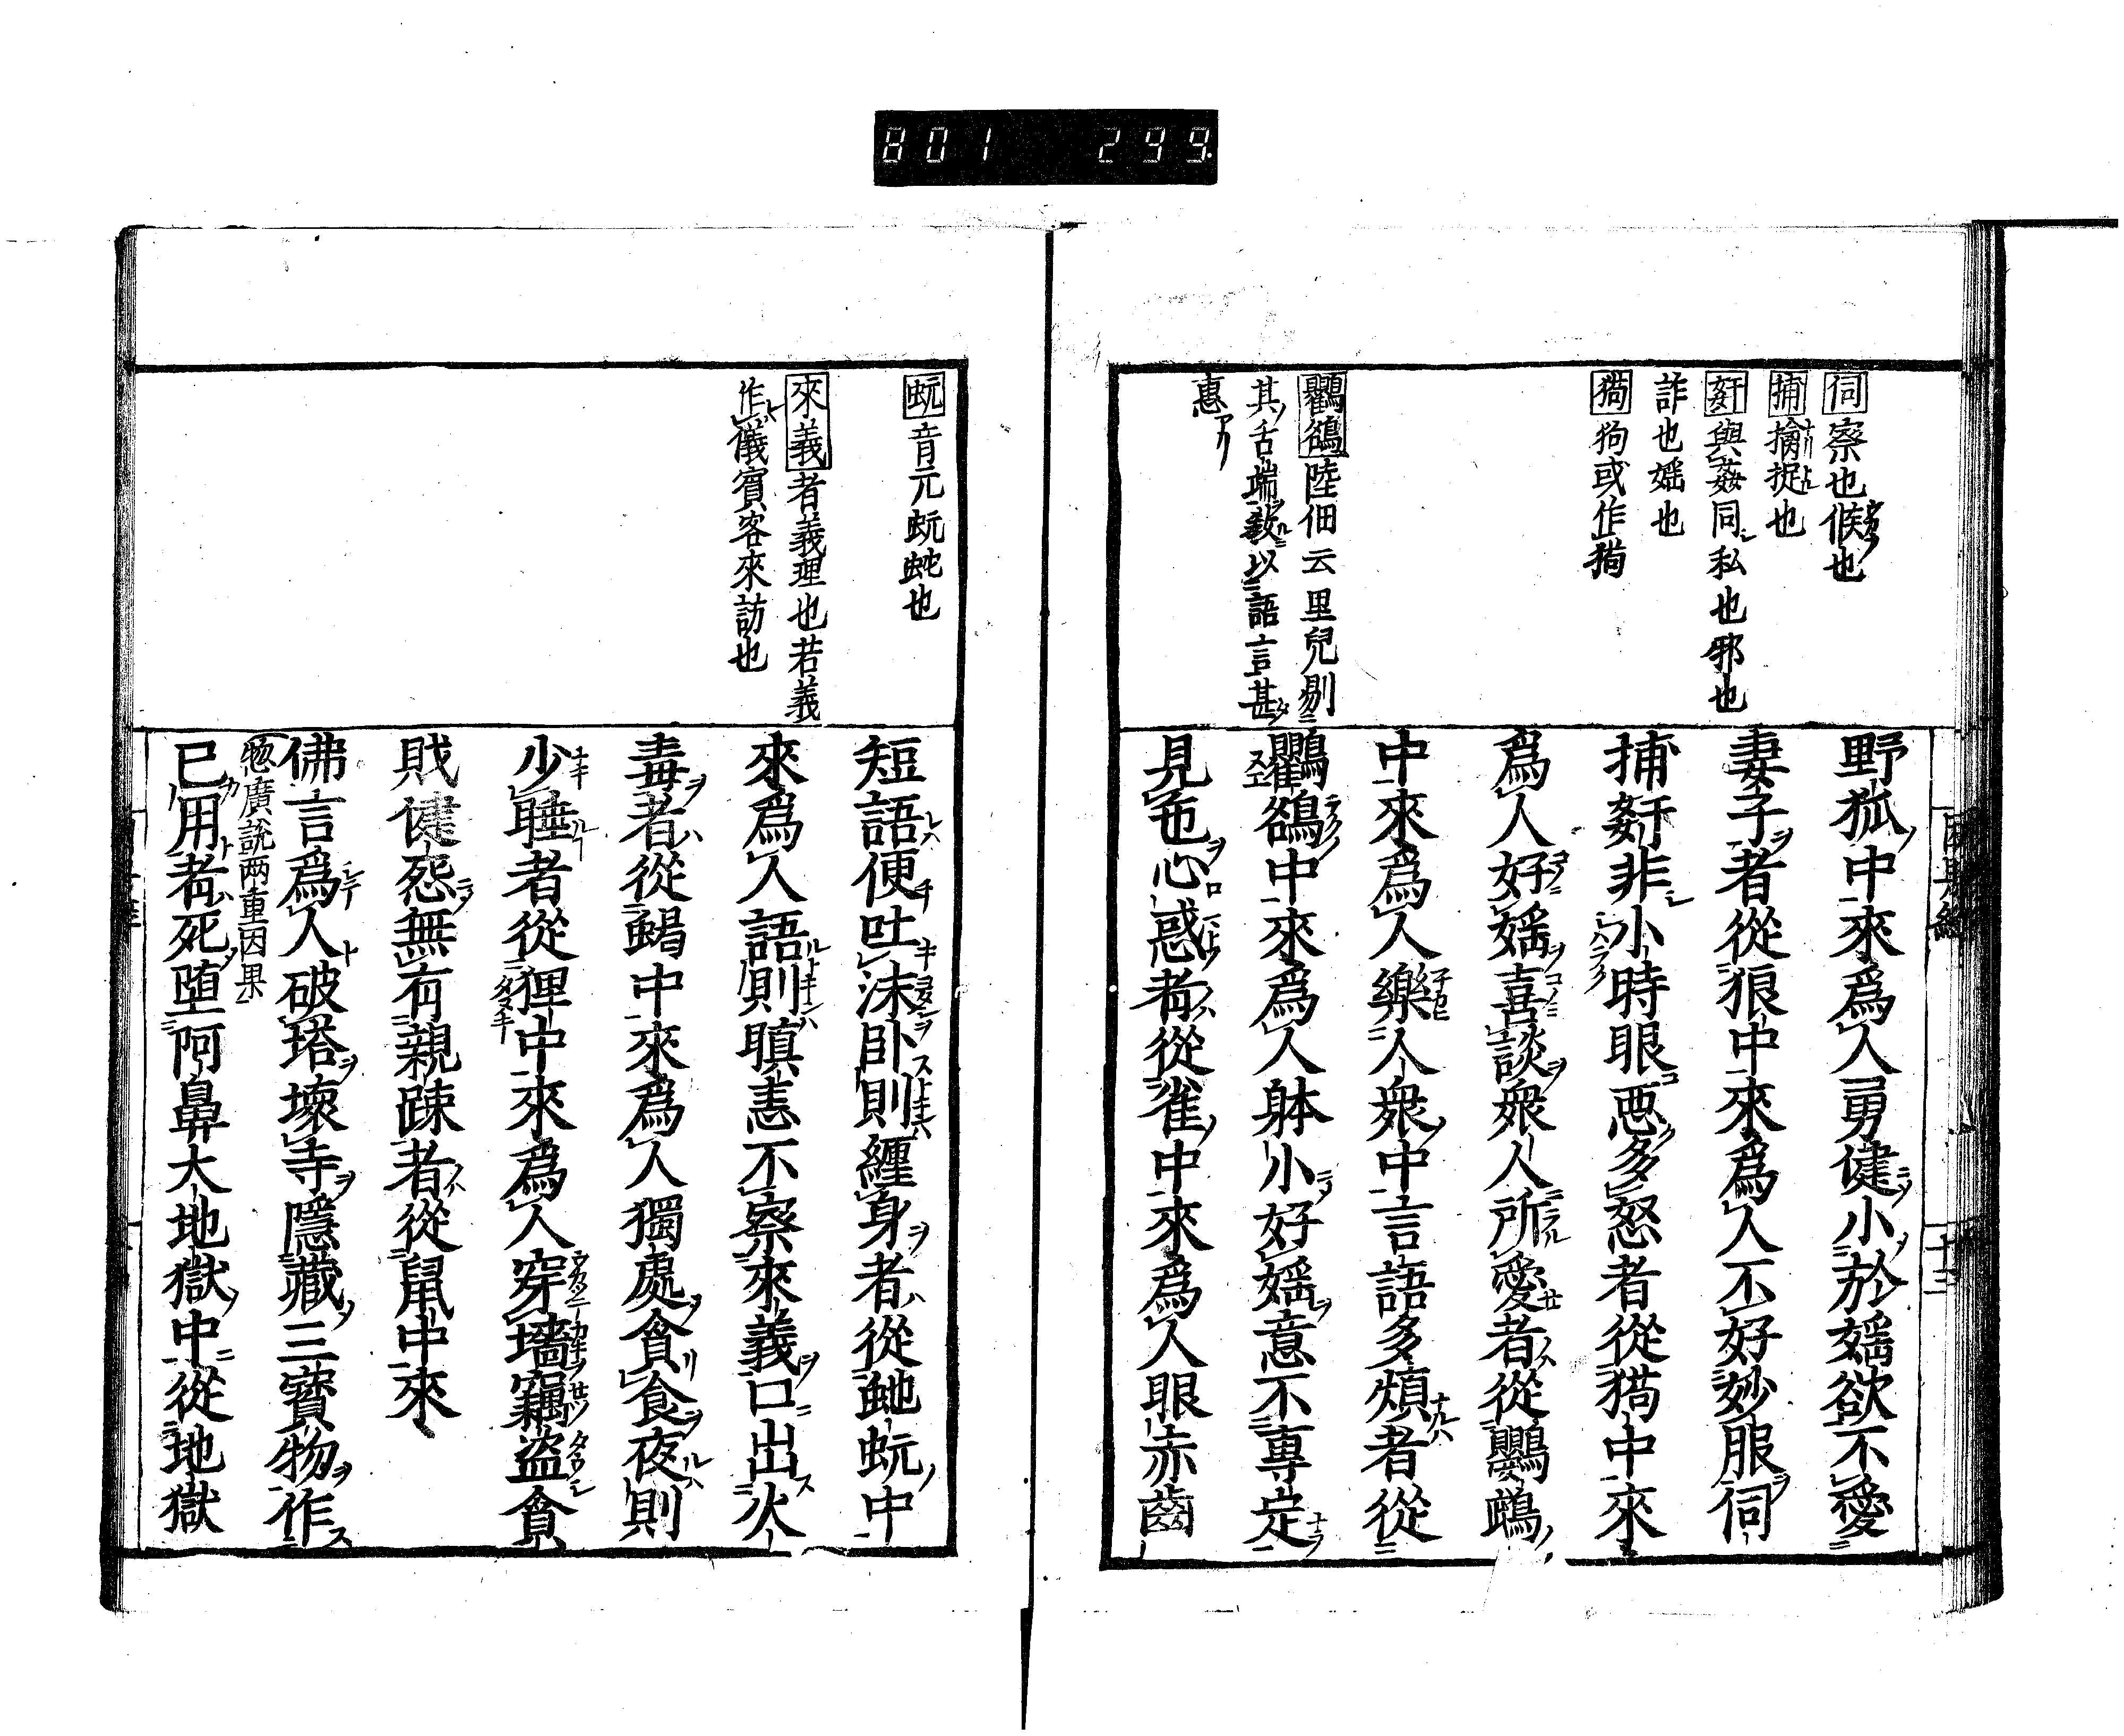 801 299
伺察也候也
捕擒捉也
姧與姦同私也邪也
詐也婬也
猫狗或作猫
鸜鵒陸佃云里兒剔
其舌端教以語言甚
惠
野狐中來爲人勇健小於婬欲不愛
妻子者從狼中來爲人不好妙服伺
捕姧非小時眼惡多怒者從猫中來
爲人好婬喜談衆人所愛者從鸚鵡
中來爲人樂人衆中言語多煩者從
鸜鵒中來爲人躰小好婬意不專定
見色心惑者從雀中來爲人眼赤齒
十三
蚖音元蚖蛇也
來義者義理也若義
作儀賓客來訪也
短語便吐沫卧則纏身者從虵蚖中
來爲人語則瞋恚不察來義口出火
毒者從蝎中來爲人獨處貪食夜則
少睡者從狸中來爲人穿墻竊盜貪
財健怨無有親疎者從鼠中來
佛言爲人破塔壞寺隱藏三寳物作
惣廣說两重因果
已用者死堕阿鼻大地獄中從地獄